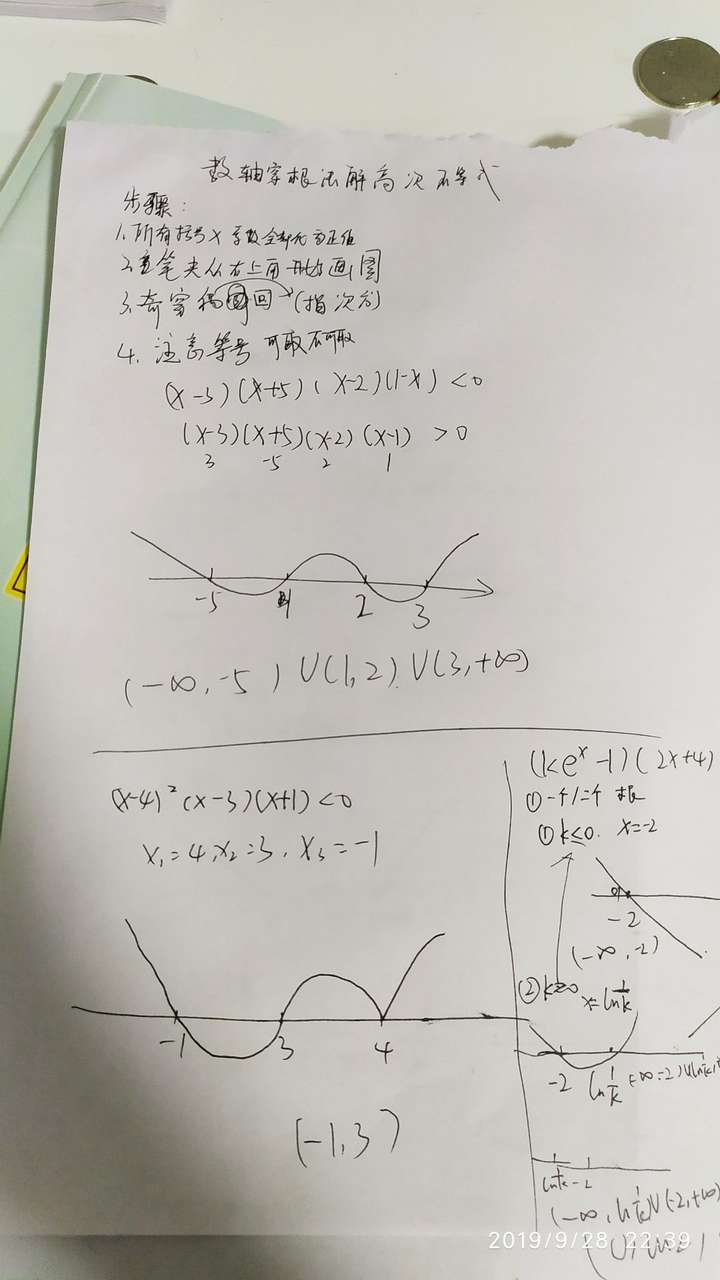 数轴穿根法解高次不等式
步骤:
1.所有括号X系数全部化为正值
2.笔尖从右上角开始画图
3.奇穿偶回(指次方)
4.注意等号 可取不可取
(x-3)(x+5)(x-2)(1-x)<0
(x-3)(x+5)(x-2)(x-1)>0
3 -5 2 1
-5 1 2 3
(-∞,-5)∪(1,2)∪(3,+∞)
(x-4)²(x-3)(x+1)<0
x₁=4,x₂=3,x₃=-1
-1 3 4
(-1,3)
(ke^x-1)(2x+4)
①一个/二个 根
①k≤0. x=-2
-2
(-∞,-2)
②k>0 x=ln1/k
-2 ln1/k (-∞,-2)∪(ln1/k,
ln1/k -2
(-∞,ln1/k)∪(-2,+∞)
2019/9/28 22:39